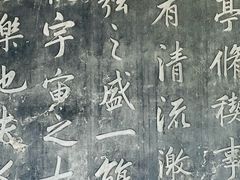 亭脩稧事
有清流激
弦之盛一觴
宇宙之大
樂也夫